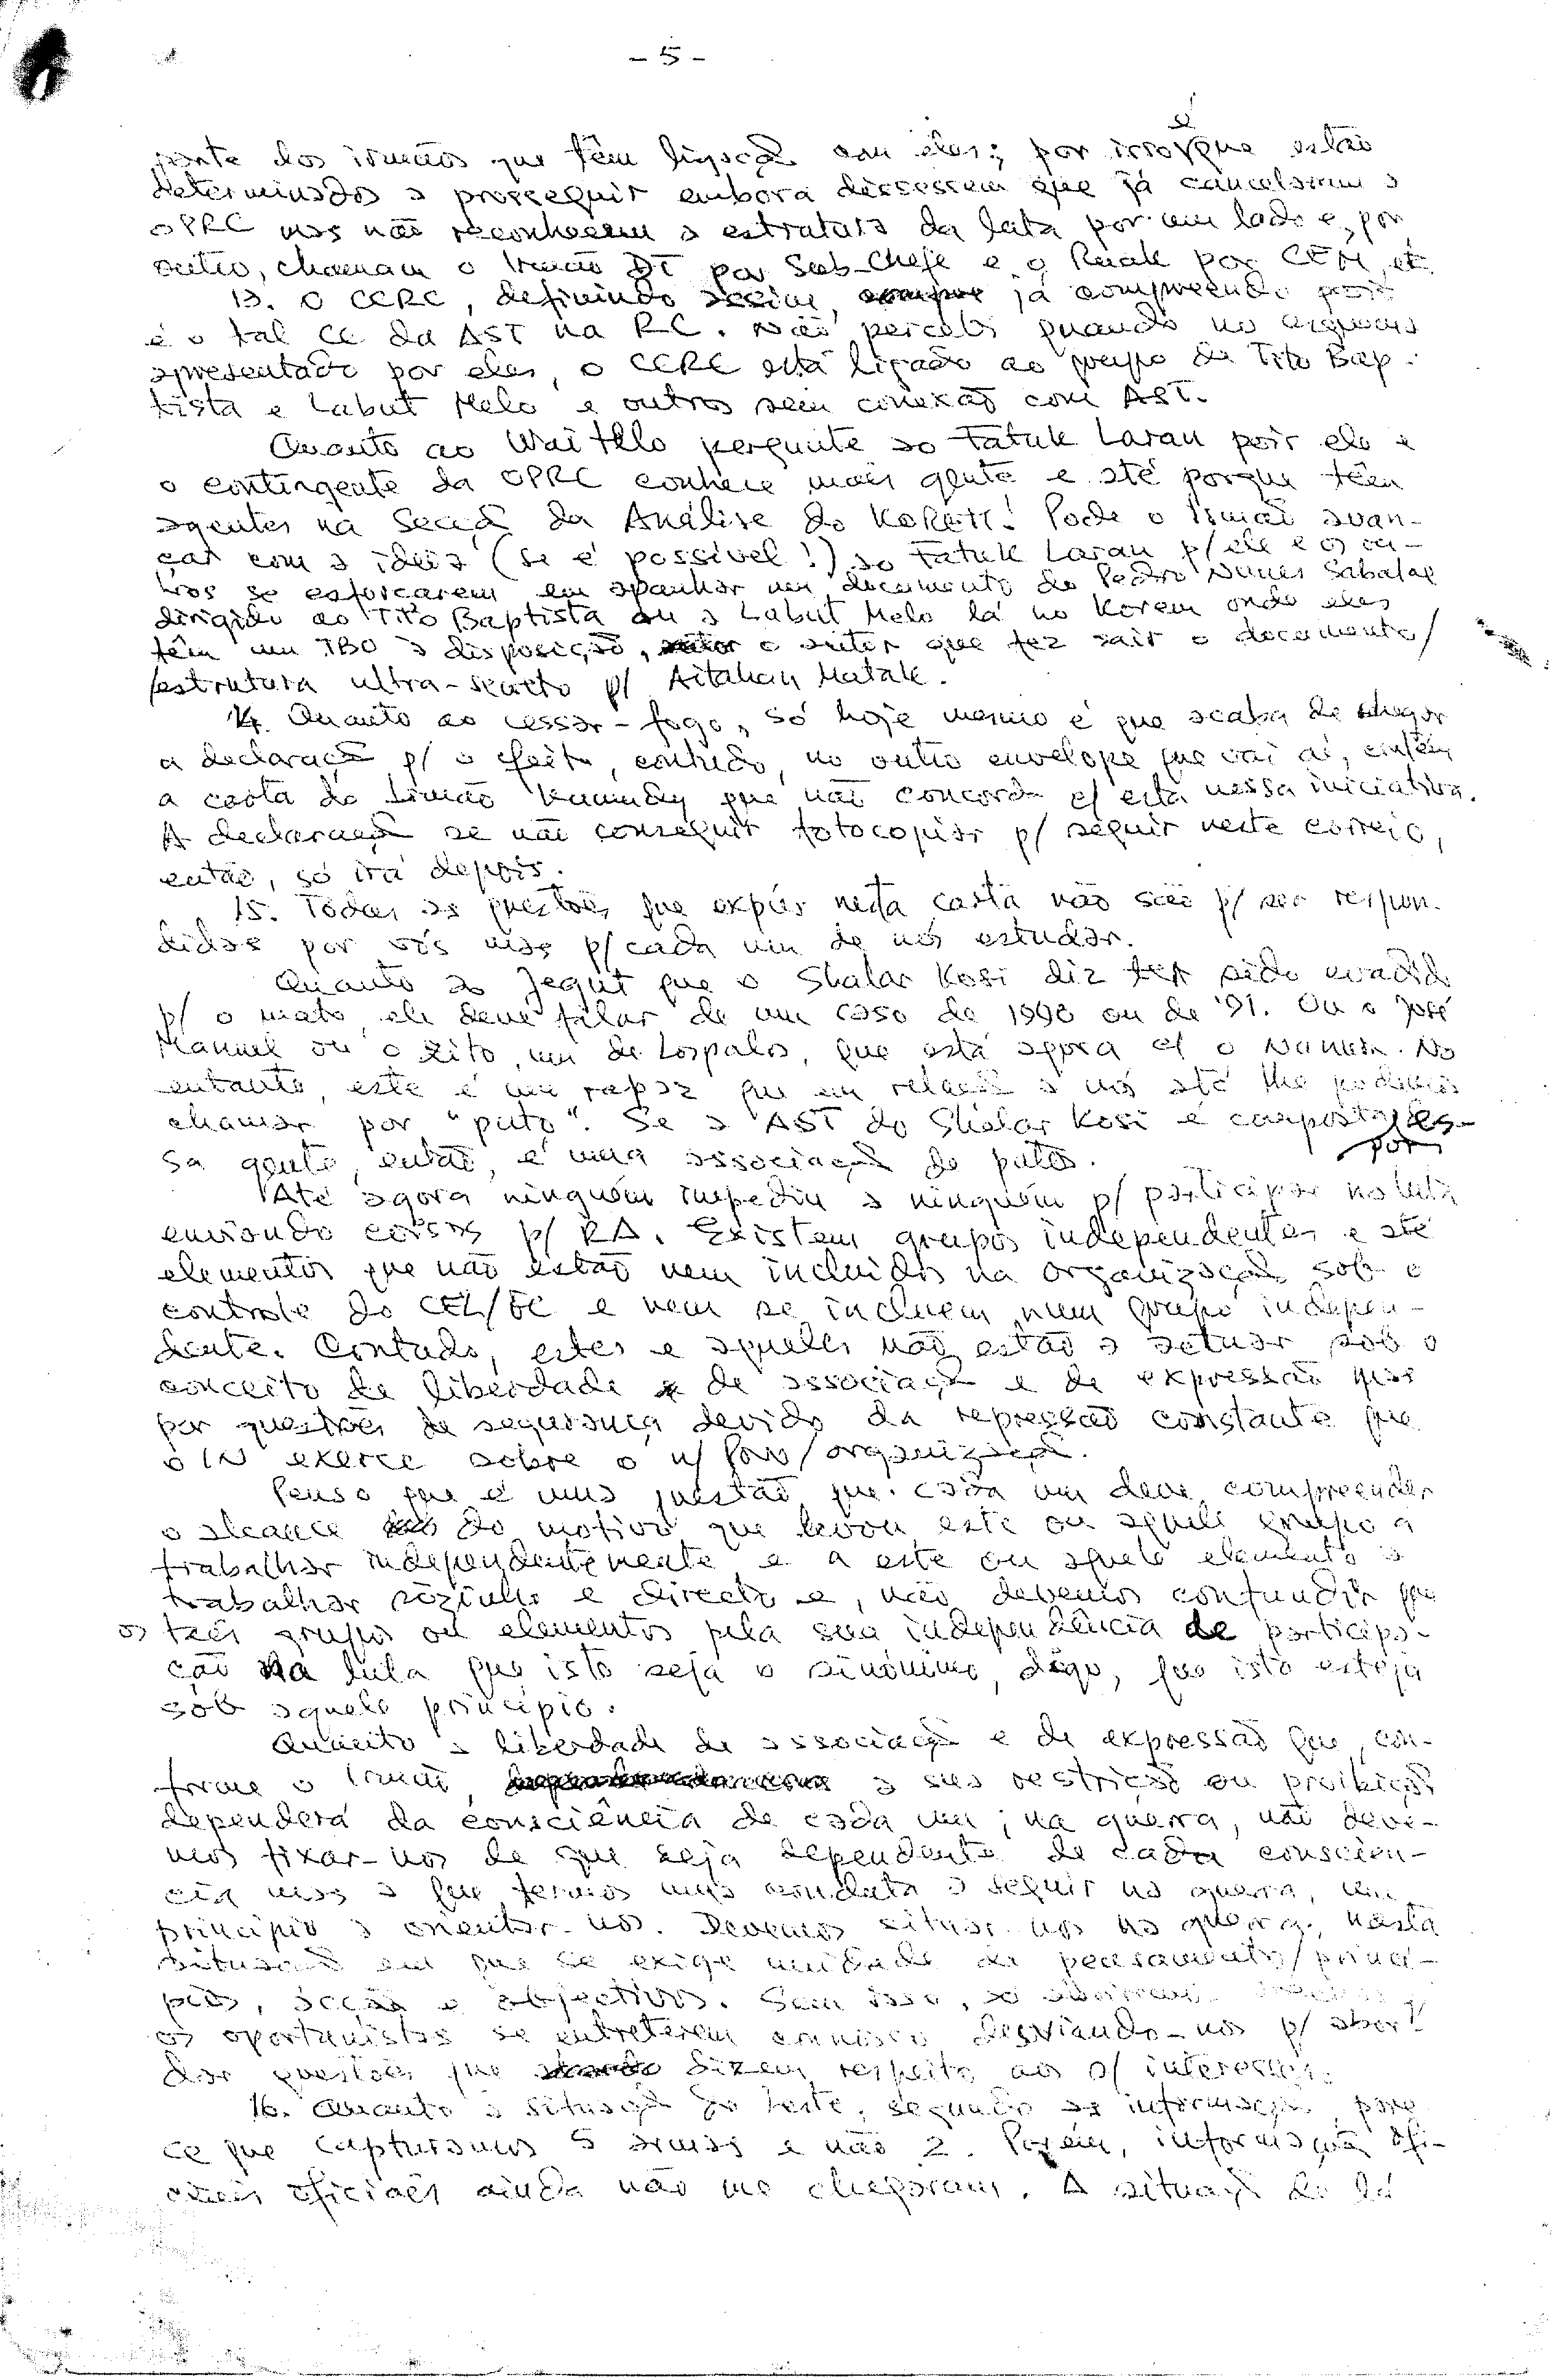 - 5 -
parte dos irmãos que têm ligação com eles; por isso é que estão
determinados a prosseguir embora dissessem que já cancelaram a
OPRC mas não reconhecem a estrutura da luta por um lado e, por
outro, chamam o Irmão DT por Sub-Chefe e o Ruak por CEM, etc
13. O CERC, definindo assim, já compreendo pois
é o tal CE da AST na RC. Não percebi quando no
apresentado por eles, o CERC está ligado ao grupo de Tito Bap-
tista e Labut Melo e outros sem conexão com AST.
Quanto ao Wai Tklo pergunte ao Fatuk Laran pois ele e
o contingente da OPRC conhece mais gente e até porque têm
agentes na Secção da Análise do KOREM! Pode o Irmão avan-
çar com a ideia (se é possível!) ao Fatuk Laran p/ ele e os ou-
tros se esforçarem em apanhar um documento do Pedro Nunes Sabalae
dirigido ao Tito Baptista ou a Labut Melo lá no Korem onde eles
têm um TBO à disposição, e autor que fez sair o documento/
/estrutura ultra-secreto p/ Aitahan Matak.
14. Quanto ao cessar-fogo, só hoje mesmo é que acaba de chegar
a declaração p/ o efeito, contudo, no outro envelope que vai aí, contém
a carta do Irmão que não concorda c/ esta nessa iniciativa.
A declaração se não conseguir fotocopiar p/ seguir neste correio,
então, só irá depois.
15. Todas as questões que expûs nesta carta não são p/ ser respon-
didas por vós mas p/ cada um de nós estudar.
Quanto ao Jequt que o Shalar Kosi diz ter sido evadido
p/ o mato, ele deve falar de um caso de 1990 ou de '91. Ou o José
Manuel ou o Zito, um de Lospalos, que está agora c/ o . No
entanto, este é um rapaz que em relação a nós até lhe podemos
chamar por "puto". Se a AST do Shalar Kosi é composta por es-
sa gente, então, é uma associação de putos.
Até agora ninguém impediu a ninguém p/ participar na luta
enviando coisas p/ RA. Existem grupos independentes e até
elementos que não estão nem incluídos na organização sob o
controle do CEL/FC e nem se incluem num grupo indepen-
dente. Contudo, estes e aqueles não estão a actuar sob o
conceito de liberdade de associação e de expressão mas
por questões de segurança devido da repressão constante que
o IN exerce sobre o n/ Povo/organização.
Penso que é uma questão que cada um deve compreender
o alcance do motivo que levou este ou aquele grupo a
trabalhar independentemente e a este ou aquele elemento a
trabalhar sòzinho e directo e, não devemos confundir que
os tais grupos ou elementos pela sua independência de participa-
ção na luta que isto seja o sinónimo, digo, que isto esteja
sob aquele princípio.
Quanto à liberdade de associação e de expressão que, con-
forme o Irmão, a sua restrição ou proibição
dependerá da consciência de cada um; na guerra, não deve-
mos fixar-nos de que seja dependente de cada consciên-
cia mas a que termos uma conduta a seguir na guerra, um
princípio a orientar-nos. Devemos situar-nos na guerra, nesta
situação em que se exige unidade de pensamento/princí-
pios, acção e objectivos. Sem isso, só
os oportunistas se entreterem connosco desviando-nos p/ abor-
dar questões que dizem respeito aos s/ interesses.
16. Quanto à situação do leste, segundo as informações, pare-
ce que capturamos 5 armas e não 2. Porém, informações ofi-
ciais oficiais ainda não me chegaram. A situação de lá